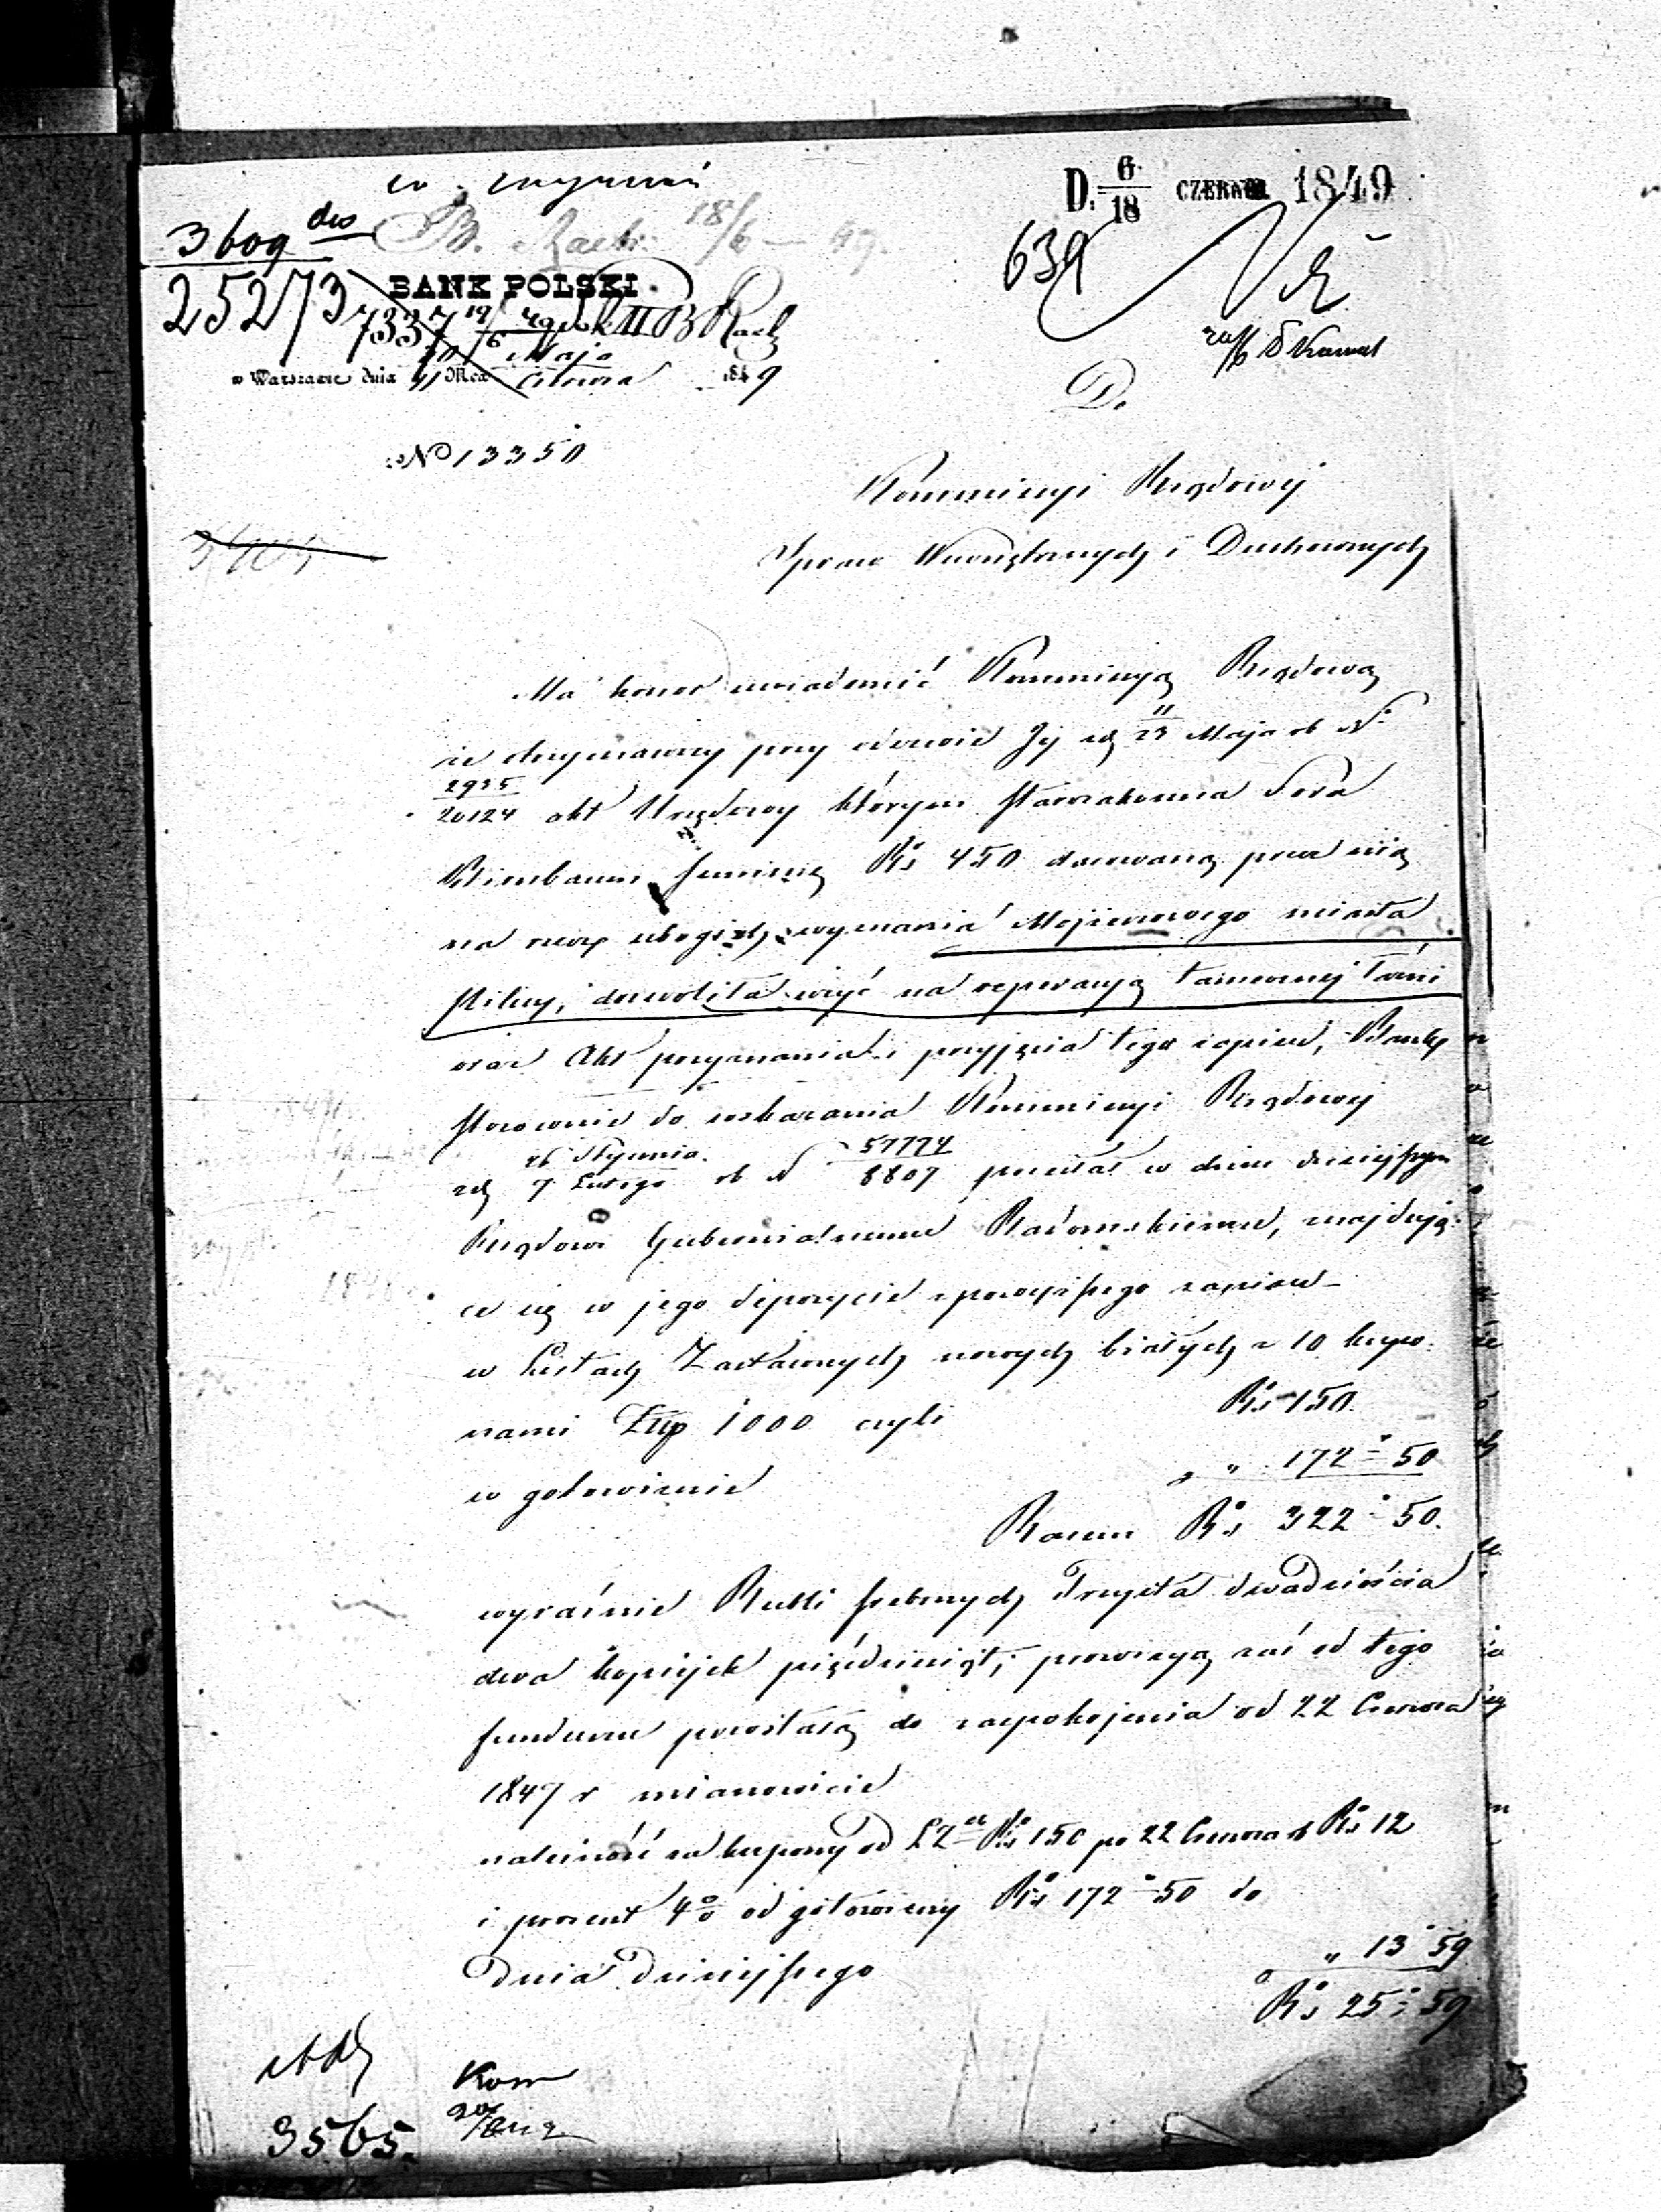 D. 6/18 CZERWCA 1849
3609
B. Rach. 18/6 49.
639
25273
BANK POLSKI
7337
w Warszawie dnia 30/11 Mca Maja/Czerwca 1849
Do
No 13350
Kommissyi Rządowéj
Spraw Wewnętrznych i Duchownych
Ma honor uwiadomić Kommissyą Rządową
że otrzymawszy przy odezwie Jéj z d. 11/23 Maja rb N
2935/20124 akt Urzędowy którym Starozakonna Sora
Birnbaum summę Rs 450 darowaną przez nią
na rzecz ubogich wyznania Mojżeszowego miasta
Pilicy, dozwoliła użyć na reperacyą tamecznej Łaźni
oraz Akt przyznania i przyjęcia tego zapisu, Bank
stosownie do wskazania Kommissyi Rządowéj
z d. 26 Stycznia/7 Lutego rb N 57774/8807 przesłał w dniu dzisiejszym
Rządowi Gubernialnemu Radomskiemu, znajdują-
ce się w jego depozycie z powyższego zapisu
w Listach Zastawnych nowych białych z 10 kupo-
nami Złp 1000 czyli Rs 150.
w gotowiznie „ 172 - 50
Razem Rs 322 - 50.
wyraźnie Rubli srebrnych Trzysta dwadzieścia
dwa kopiejek pięćdziesiąt, prowizyą zaś od tego
funduszu pozostałą do zaspokojenia od 22 Czerwca
1847 r mianowicie
należność za kupony od LZ Rs 150 po 22 Czerwca rb Rs 12
i procent 4% od gotowizny Rs 172 - 50 do
dnia dzisiejszego „ 13 59
Rs 25 : 59
3565.